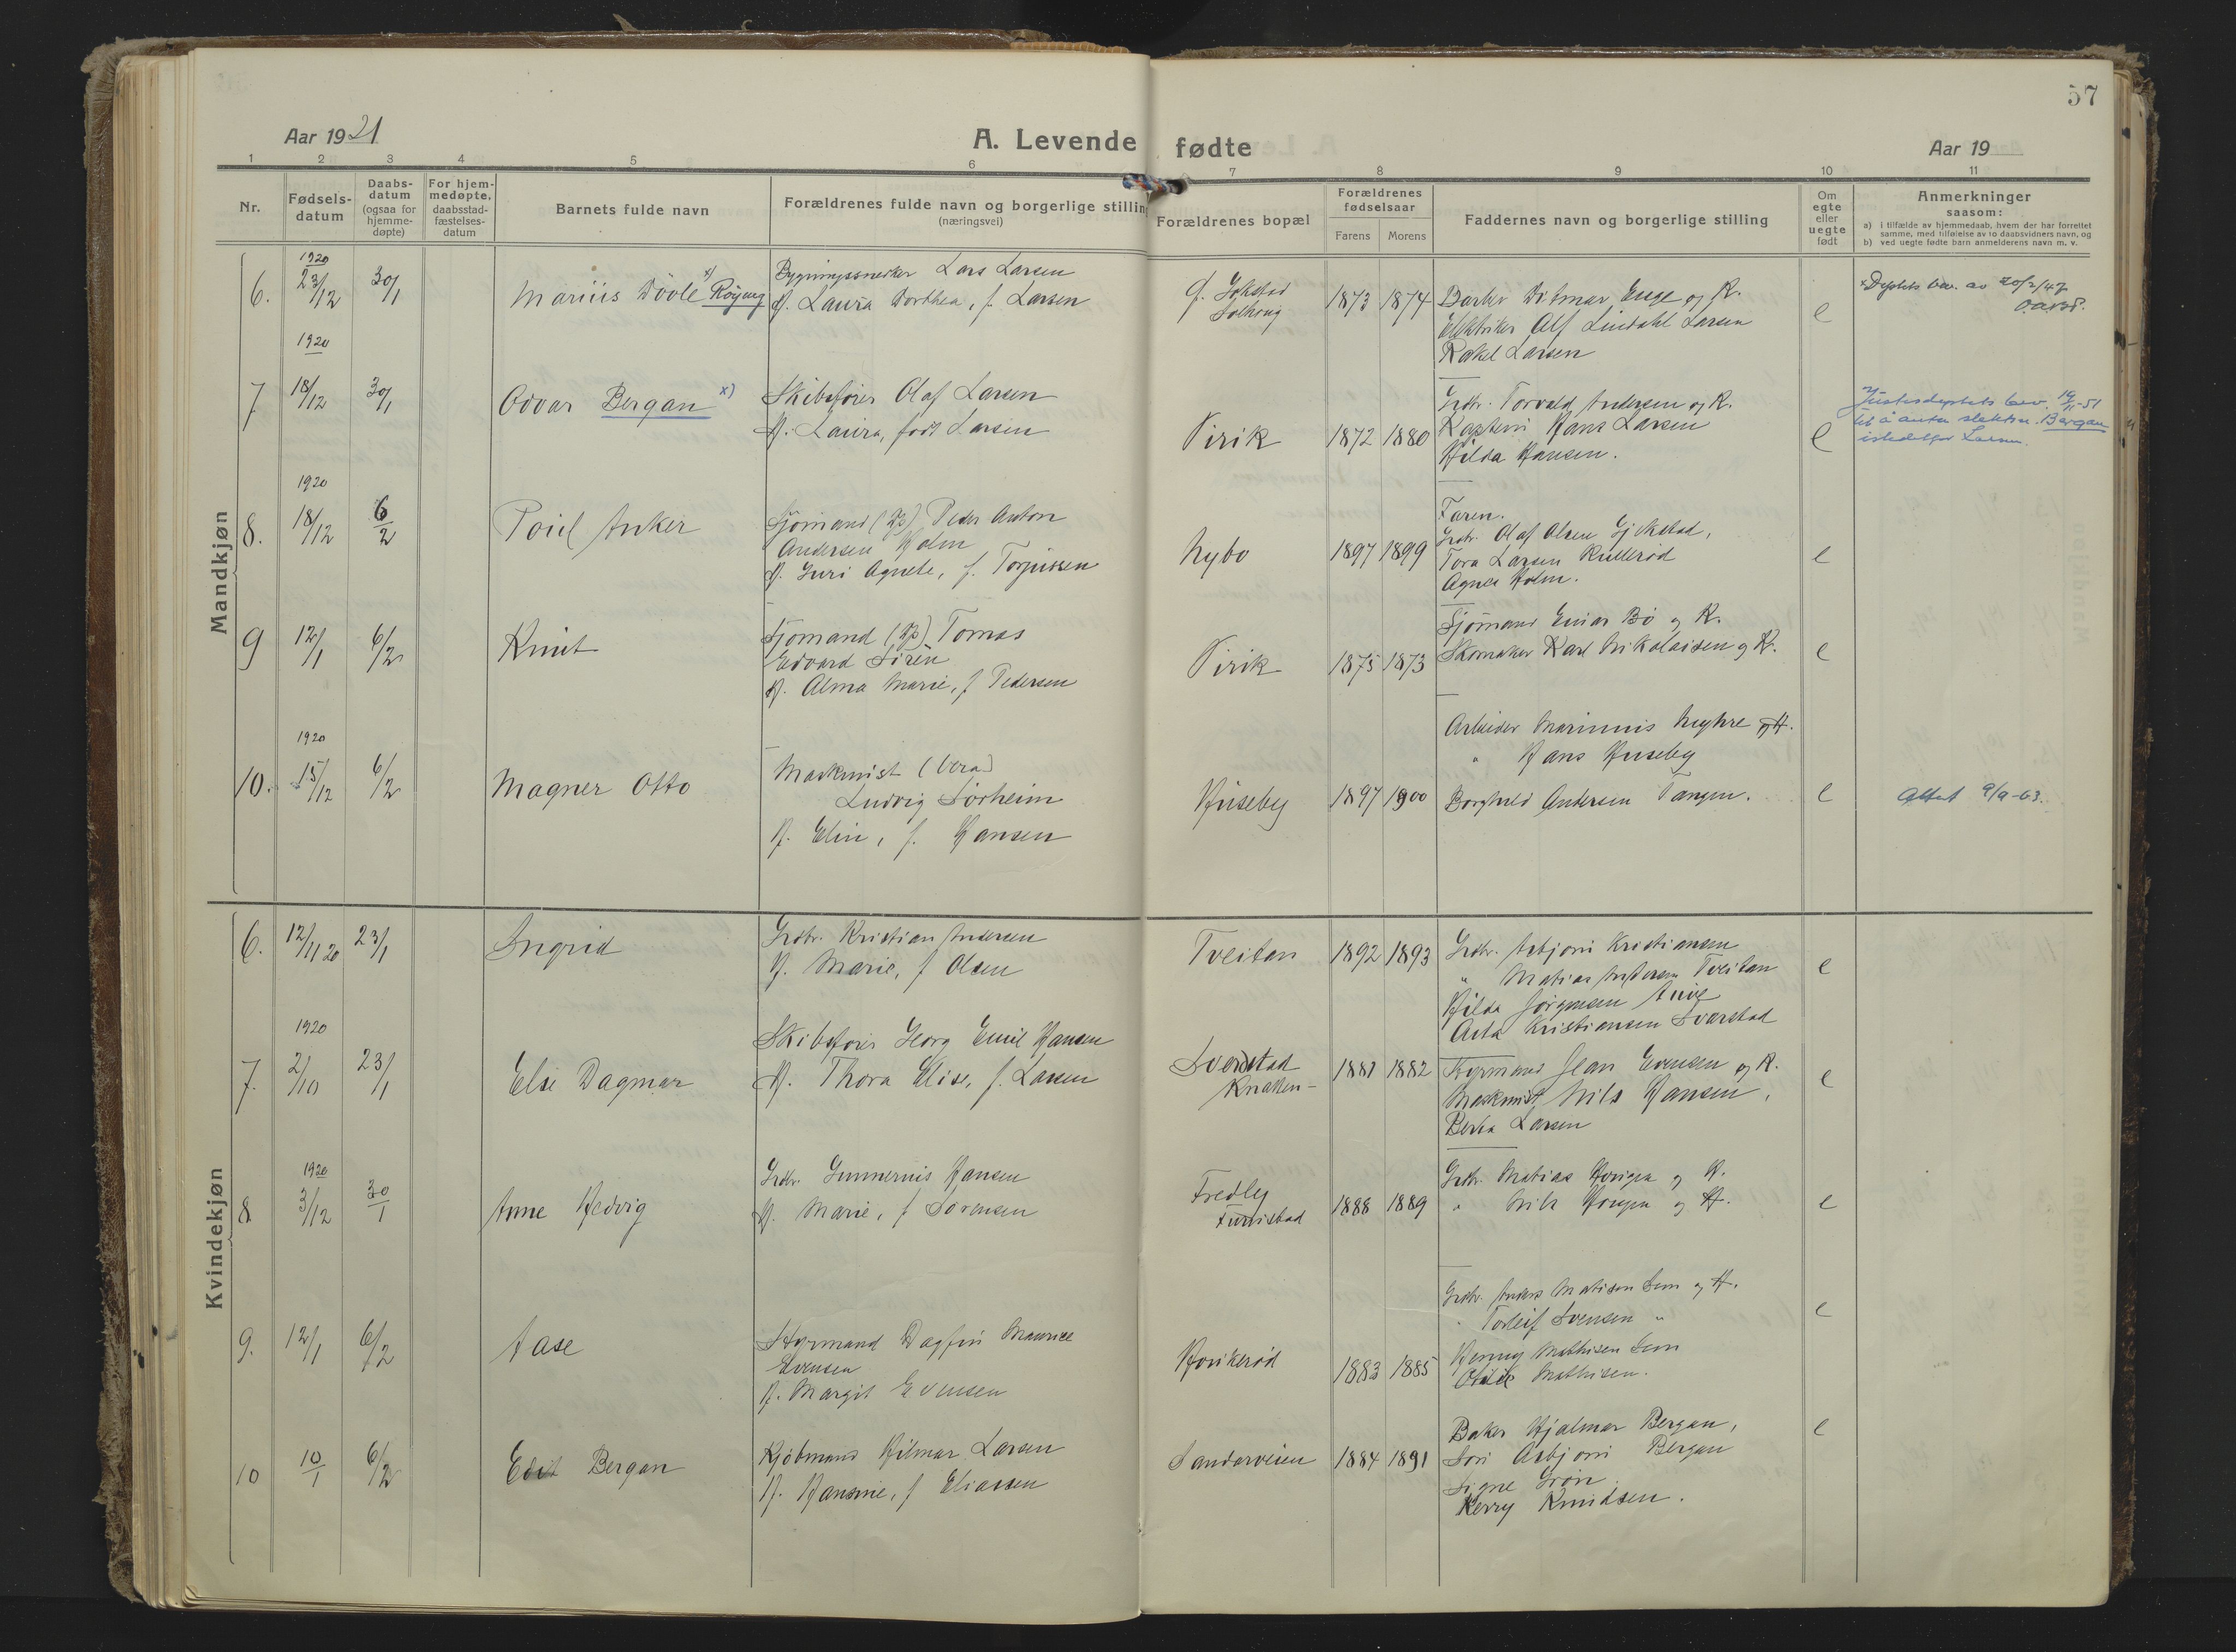 57
Aar 1921
A. Levende fødte
Aar 19
1 2 3 4 5 6 7 8 9 10 11
Nr.
Fødsels-
datum
Daabs-
datum
(ogsaa for
hjemme-
døpte)
For hjem-
medøpte,
daabsstad-
fæstelses-
datum
Barnets fulde navn
Forældrenes fulde navn og borgerlige stilling
(næringsvei)
Forældrenes bopæl
Forældrenes
fødselsaar
Farens Morens
Faddernes navn og borgerlige stilling
Om
egte
eller
uegte
født
Anmerkninger
saasom:
a) i tilfælde av hjemmedaab, hvem der har forrettet
samme, med tilføielse av to daabsvidners navn, og
b) ved uegte fødte barn anmelderens navn m. v.
Mandkjøn
6.
1920
23/12
30/1
Marius x)
Bygningssnekker Lars Larsen
H. Laura Dorthea, f. Larsen
G. Gokstad
Solhoug
1873 1874
Barber Ditmar Enge og K.
Elektriker Alf Lindahl Larsen
Rakel Larsen
e
x Deptets bev. av 20/2/47
7
1920
18/12
30/1
Odvar Bergan x)
Skibsfører Olaf Larsen
H. Laura, født Larsen
Virik
1872 1880
Grdbr. Torvald Andersen og K.
Kaptein Hans Larsen
Hilda Hansen.
e
Justisdeptets bev. 19/11-51
til å anta slektsn. Bergan
istedetfor Larsen.
8.
1920
18/12
6/2
Poul Anker
Sjømand Peder Anton
Andersen Holm
H. Guri Agnete, f. Torjussen
Nybo
1897 1899
Faren.
Grdbr. Olaf Olsen Gjekstad,
Tora Larsen Kullerød
Agnes Holm.
e
9
12/1
6/2
Knut
Sjømand Tomas
Edvard Sirén
H. Alma Marie, f Pedersen
Virik
1875 1873
Sjømand Einar Bø og K.
Skomaker Karl Nikolaisen og K.
e
10.
1920
15/12
6/2
Magner Otto
Maskinist
Ludvig Sørheim
H. Elin, f. Hansen
Huseby
1897 1900
Arbeider Marinius Myhre og H.
" Hans Huseby
Borghild Andersen Tangen.
e
Attest 9/9-63.
Kvindekjøn
6.
12/11 20
23/1
Ingrid
Grdbr. Kristian Andersen
H. Marie, f Olsen
Tveitan
1892 1893
Grdbr. Asbjørn Kristiansen
" Matias Andersen Tveitan
Hilda Jørgensen
Asta Kristiansen Sverstad
e
7.
1920
2/10
23/1
Else Dagmar
Skibsfører Georg Emil Hansen
H. Thora Elise, f. Larsen
Sverdstad
1881 1882
Styrmand Jean Evensen og K.
Maskinist Nils Hansen,
Berta Larsen
e
8
1920
3/12
30/1
Anne Hedvig
Grdbr. Gunnerius Hansen
H. Marie, f Sørensen
Fredly
1888 1889
Grdbr. Matias og H.
" Nils og H.
e
9.
12/1
6/2
Aase
Styrmand Dagfin Maurice
Evensen
H. Margit Evensen
Hovikerød
1883 1885
Grdbr. Anders Matisen Sem og H.
" Torleif Svensen "
Henny Mathisen Sem
Mathisen.
e
10
10/1
6/2
Edit Bergan
Kjøbmand Hilmar Larsen
H. Hansine, f Eliassen
Sandarveien
1884 1891
Baker Hjalmar Bergan,
Asbjørn Bergan
Signe Grøn.
Kerry Knudsen.
e